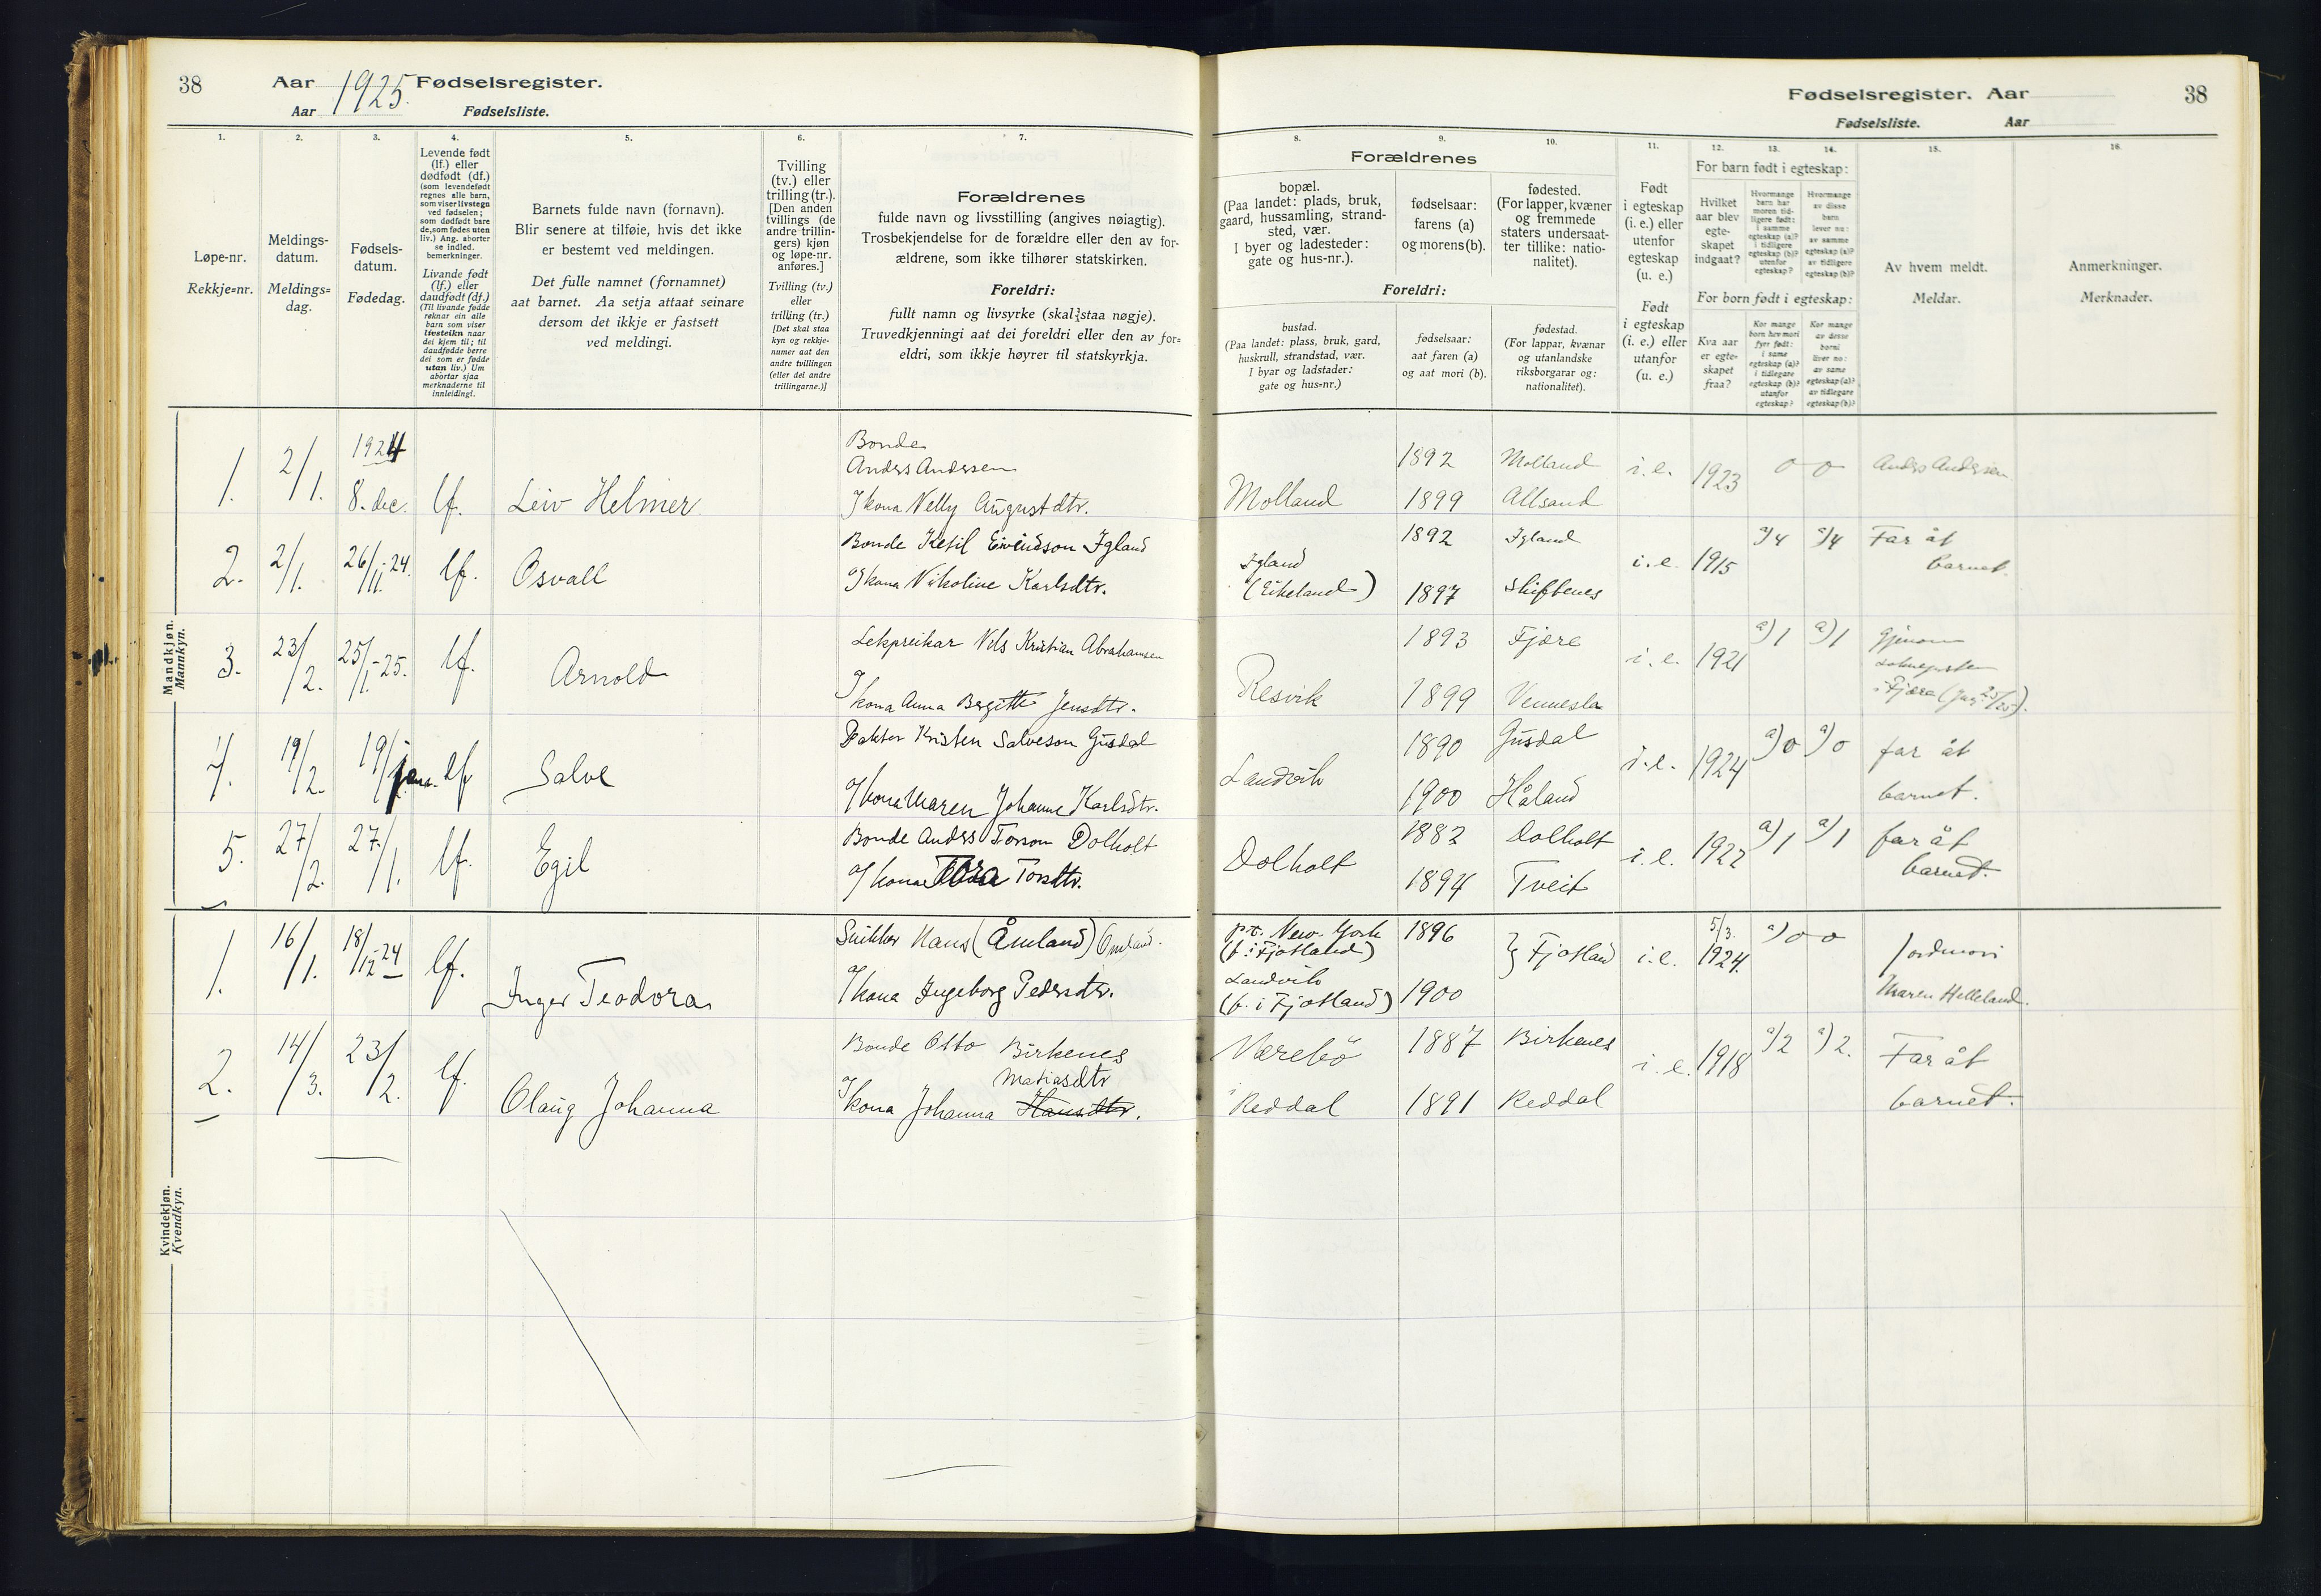 38
Aar 1925. Fødselsregister.
Aar Fødselsliste.
1. 2. 3. 4. 5. 6. 7.
Løpe-nr.
Rekkje=nr.
Meldings-
datum.
Meldings=
dag.
Fødsels-
datum.
Fødedag.
Levende født
(lf.) eller
dødfødt (df.)
(som levendefødt
regnes alle barn,
som viser livstegn
ved fødselen;
som dødfødt bare
de, som fødes uten
liv.) Ang. aborter
se indled.
bemerkninger.
Livande født
(lf.) eller
daudfødt (df.)
(Til livande fødde
reknar ein alle
barn som viser
livsteikn naar
dei kjem til; til
daudfødde berre
dei som er fødde
utan liv.) Um
abortar sjaa
merknaderne til
innleidingi.
Barnets fulde navn (fornavn).
Blir senere at tilføie, hvis det ikke
er bestemt ved meldingen.
Det fulle namnet (fornamnet)
aat barnet. Aa setja attaat seinare
dersom det ikkje er fastsett
ved meldingi.
Tvilling
(tv.) eller
trilling (tr.).
[Den anden
tvillings (de
andre trillin-
gers) kjøn
og løpe-nr.
anføres.]
Tvilling (tv.)
eller
trilling (tr.)
[Det skal staa
kyn og rekkje-
numer aat den
andre tvillingen
(eller dei andre
trillingarne.)]
Forældrenes
fulde navn og livsstilling (angives nøiagtig).
Trosbekjendelse for de forældre eller den av for-
ældrene, som ikke tilhører statskirken.
Foreldri:
fullt namn og livsyrke (skal staa nøgje).
Truvedkjenningi aat dei foreldri eller den av for=
eldri, som ikkje høyrer til statskyrkja.
Mandkjøn.
Mannkyn.
1. 2/1. 1924 8. dec. lf. Leiv Helmer
Bonde
Anders Andersen
Jkona Nelly Augustdtr.
2. 2/1. 26/11.-24. lf. Osvall
Bonde Ketil Eivindson Igland
Jkona Nikoline Karlsdtr.
3. 23/2. 25/1.-25. lf. Arnold
Lekpreikar Nils Kristian Abrahamsen
Jkona Anna Bergitte Jensdtr.
4. 19/2. 19/jan. lf Salve
Dakter Kristen Salveson Gusdal
Jkona Maren Johanne Karlsdtr.
5. 27/2. 27/1. lf. Egil
Bonde Anders Torson Dolholt
Jkona Tora Torsdtr.
Kvindekjøn.
Kvendkyn.
1. 16/1. 18/12-24 lf. Inger Teodora
Snikker Hans (Åmland) Omland.
Jkona Ingeborg Pedersdtr.
2. 14/3. 23/2. lf. Olaug Johanna
Bonde Otto Birkenes
Matiasdtr
Jkona Johanna Hansdtr.
Fødselsregister. Aar
38
Fødselsliste. Aar
8. 9. 10. 11. 12. 13. 14. 15. 16.
Forældrenes
bopæl.
(Paa landet: plads, bruk,
gaard, hussamling, strand-
sted, vær.
I byer og ladesteder:
gate og hus-nr.).
fødselsaar:
farens (a)
og morens (b).
fødested.
(For lapper, kvæner
og fremmede
staters undersaat-
ter tillike: natio-
nalitet).
Foreldri:
bustad.
(Paa landet: plass, bruk, gard,
huskrull, strandstad, vær.
I byar og ladstader:
gate og hus=nr.)
fødselsaar:
aat faren (a)
og aat mori (b).
fødestad.
(For lappar, kvænar
og utanlandske
riksborgarar og:
nationalitet).
Født
i egteskap
(i. e.) eller
utenfor
egteskap
(u. e.)
Født
i egteskap
(i. e.) eller
utanfor
(u. e.)
For barn født i egteskap:
Hvilket
aar blev
egte-
skapet
indgaat?
Hvormange
barn har
moren tid-
ligere født:
i samme
egteskap (a)?
i tidligere
egteskap (b)?
utenfor
egteskap?
Hvormange
av disse
barn
lever nu:
av samme
egteskap (a)?
av tidligere
egteskap (b)?
For born født i egteskap:
Kva aar
er egte-
skapet
fraa?
Kor mange
born hev mori
fyrr født:
i same
egteskap (a)?
i tidlegare
egteskap (b)?
utanfor
egteskap?
Kor mange
av desse
borni
liver no:
av same
egteskap (a)?
av tidlegare
egteskap (b)?
Av hvem meldt.
Meldar.
Anmerkninger.
Merknader.
Molland 1892 Molland i. e. 1923 0 0 Anders Andersen
1899 Allsand
Igland 1892 Igland i. e. 1915 a/4 a/4 Far åt
(Eikeland) 1897 Skiftenes barnet.
Resvik 1893 Fjære i. e. 1921 a)1 a)1 Gjenom
1899 Vennesla
i Fjære
Landvik 1890 Gusdal i. e. 1924 a)0 a)0 far åt
1900 Håland barnet.
Dolholt 1882 Dolholt i. e. 1922 a)1 a)1 far åt
1894 Tveit barnet.
p.t. New-York 1896 } Fjotland i. e. 5/3. 1924. a)0 0 Jordmori
(f. i Fjotland)
Landvik
(f. i Fjotland) 1900 Maren Helleland.
Værebö 1887 Birkenes i. e. 1918 a/2 a)2. Far åt
i Reddal 1891 Reddal barnet.